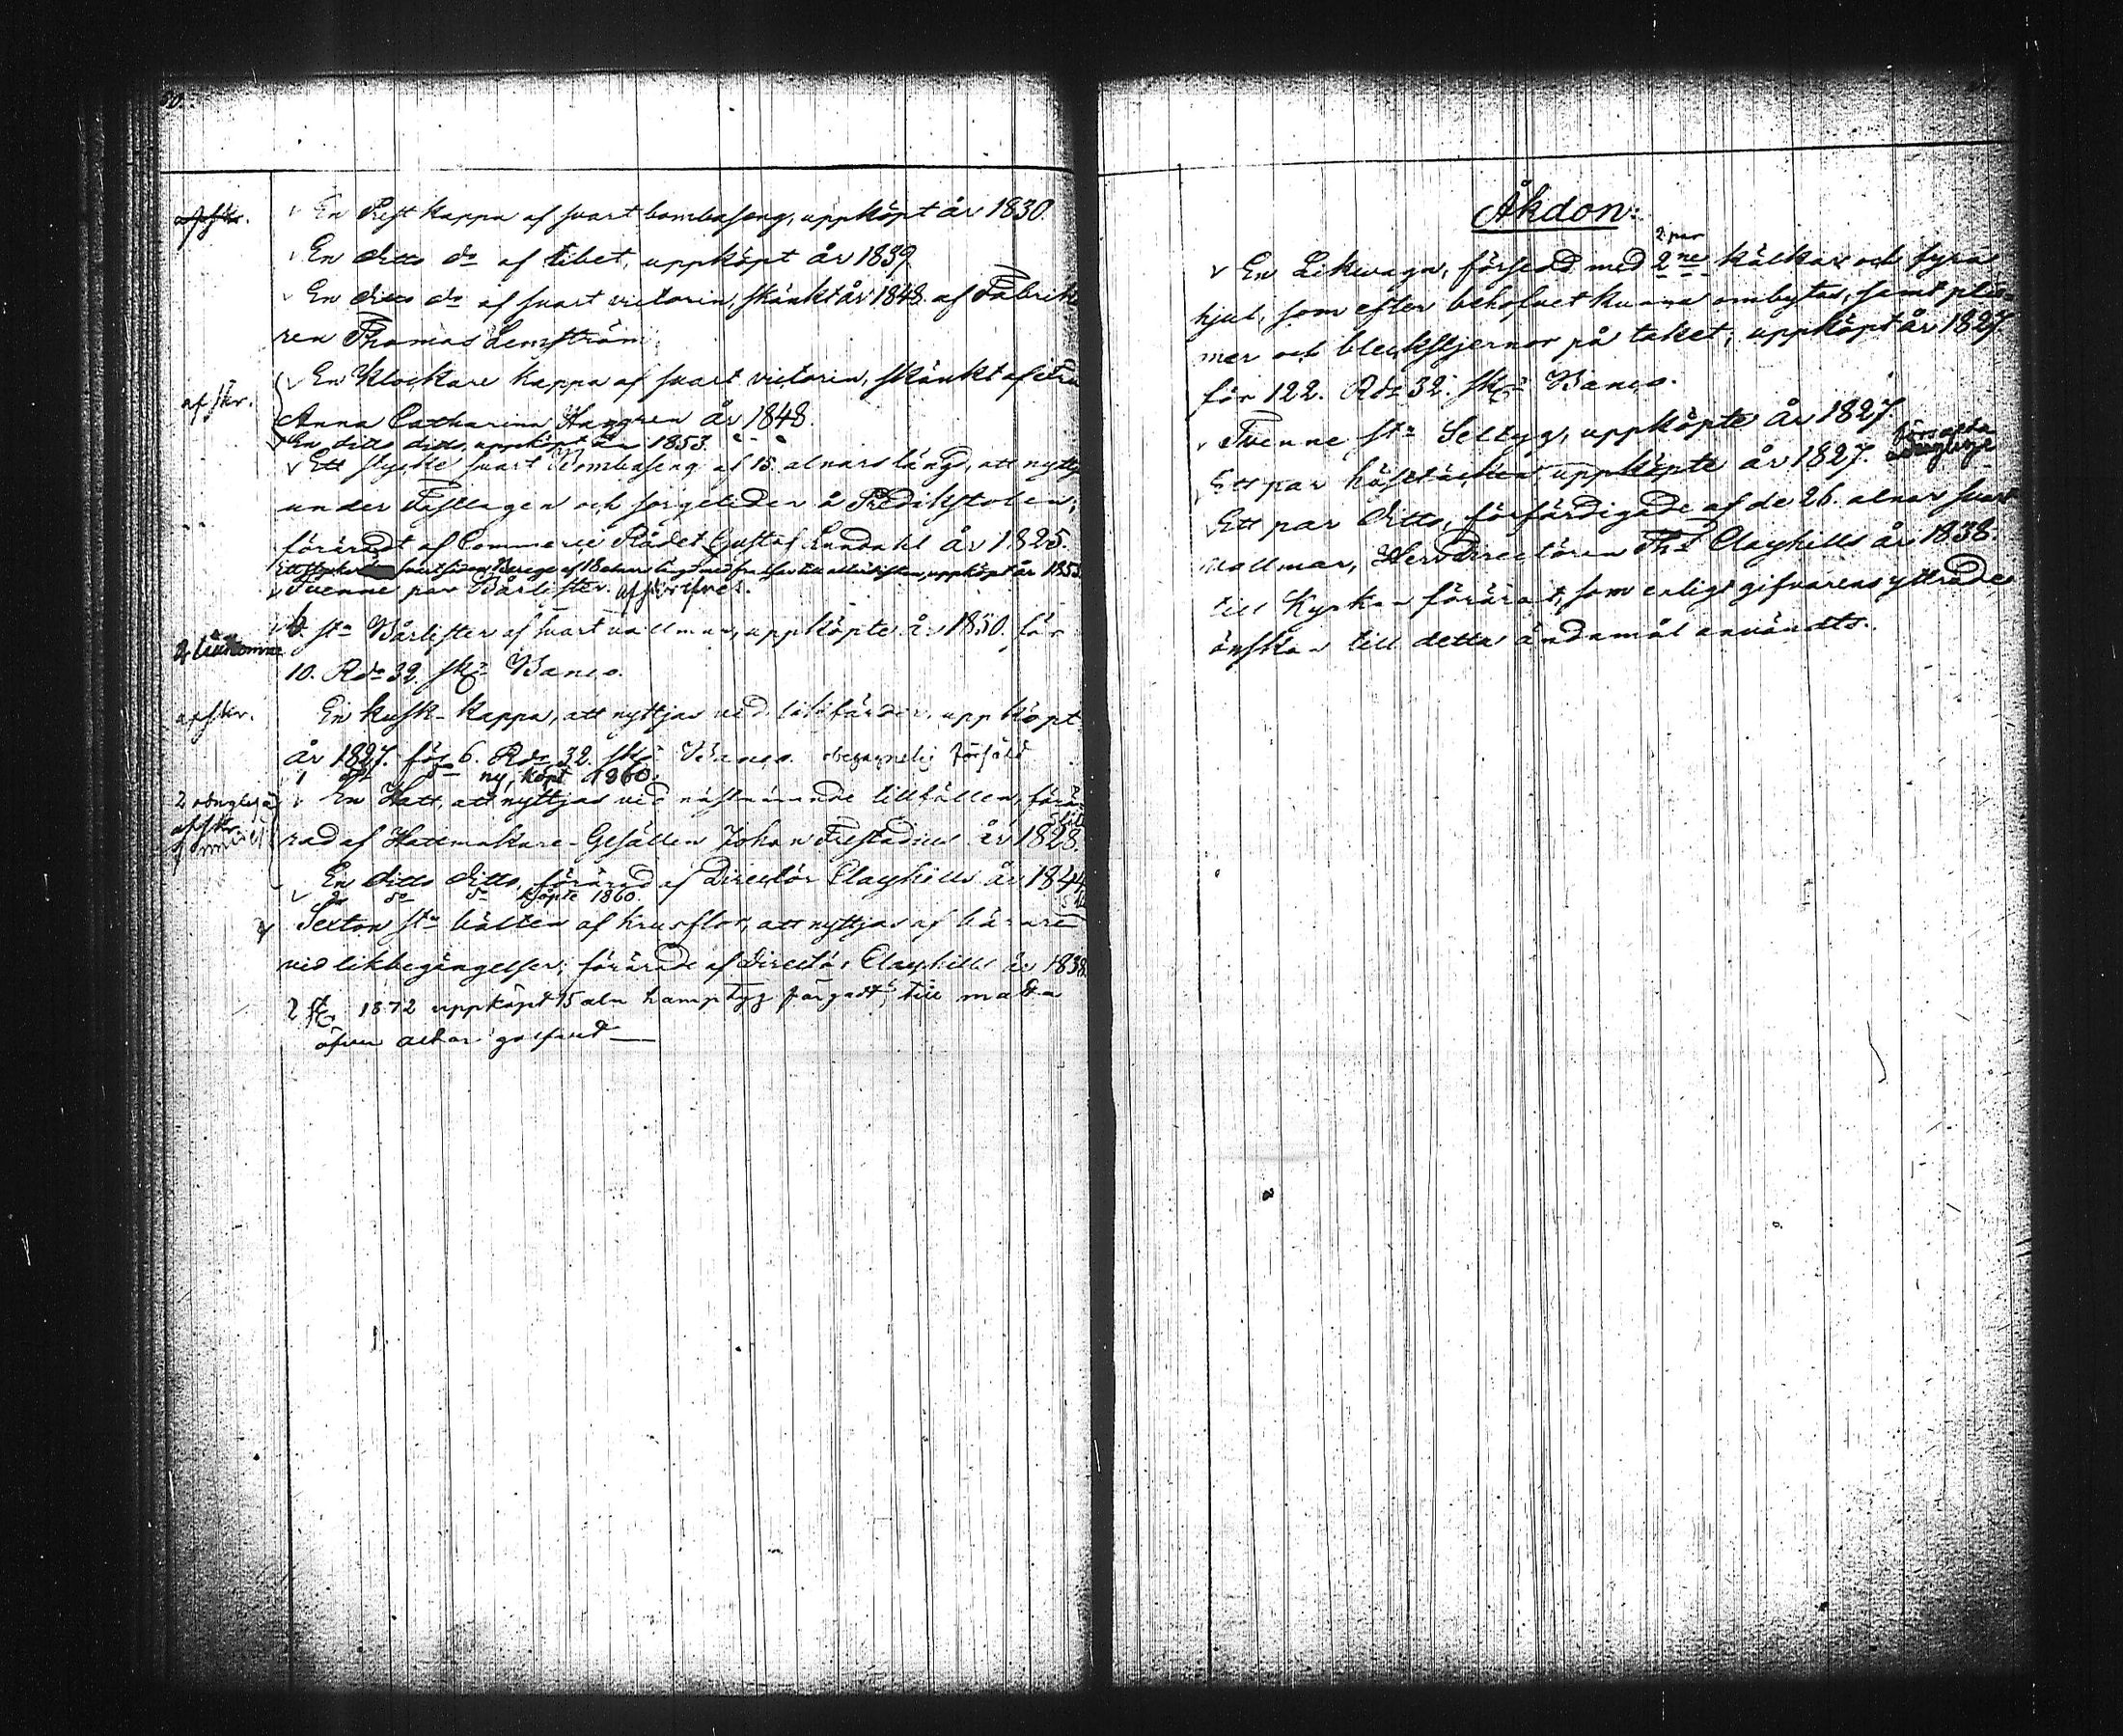 afskr.
En Prest kappa af svart bombaseng, uppköpt år 1830.
En ditto do af tibet, uppköpt år 1839.
En ditto do af svart victorin, skänkt år 1848. af Fabrikö
ren Thomas Lemström
En Klockare kappa af svart victorin, skänkt af
afskr.
Anna Catharina Haggren år 1848.
En ditto ditto, uppköpt år 1853.
Ett stycke svart Bombaseng af 15. alnars längd, att nyttj
under Fastlagen och sorgetiden å Predikstolen,
föräradt af Commerce Rådet Gustaf Lundahl år 1825.
Ett stycke svart af 18 alnars längd med fransar till altardisken, uppköpt år 1853
Tvenne par Bårlister. afskrifves.
6. sta Bårlister af svart vallmar, uppköpte år 1830. för
10. Rdr 32. sk: Banco.
afskr.
En kusk-kappa, att nyttjas vid likfärder, uppköpt
år 1827. för 6. Rdr 32. sk: Banco. obegagnelig försåld
1 do do ny, köpt 1860.
2 odugliga
afskr.
En Hatt, att nyttjas vid nästnämnde tillfällen, förä
rad af Hattmakare-Gesällen Johan år 1828.
En ditto ditto, förärad af Director Clayhills år 1844
2 do do köpte 1860.
Sexton sta bälten af krusflor, att nyttjas af bärare
vid likbegängelser; förärade af Director Clayhills år 1838
2 st 1872 uppköpt 15 aln hamptyg färgadt, till matta
öfver altar golfvet
Åkdon:
2 par
En Likvagn, försedd med 2ne kälkar och fyra
hjul, som efter behofvet kunna ombytas, samt plu-
mer och bleckstjernor på taket; uppköpt år 1827.
för 122. Rdr 32. sk: Banco.
Tvenne sta Seltyg, uppköpte år 1827.
Ett par hästtäcken, uppköpte år 1827.
Ett par ditto, förfärdigade af de 26. alnar svart
vallmar, Herr Directören Ths Clayhills år 1838.
till Kyrkan förärat, som enligt gifvarens yttrade
önskan till detta ändamål användts.